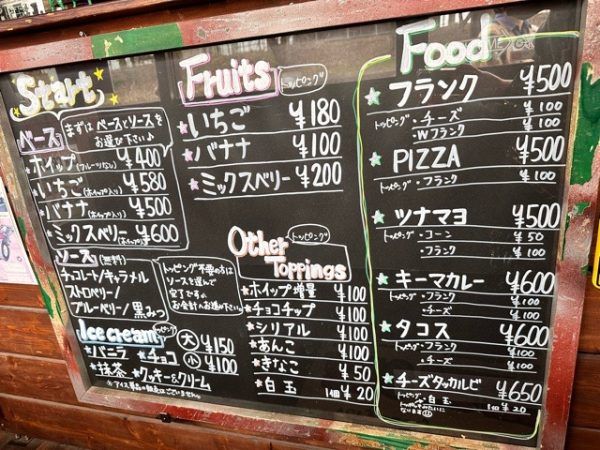 Start
まずはベースとソースを
お選び下さい♪
ベース
ホイップ(フルーツなし) ¥400
いちご(ホイップ入り) ¥580
バナナ(ホイップ入り) ¥500
ミックスベリー(ホイップ入り) ¥600
ソース(無料)
チョコレート/キャラメル
ストロベリー/
ブルーベリー/黒みつ
トッピング不要の方は
ソースを選んで
完了です
お会計へお進み下さい
Ice cream トッピング
バニラ チョコ
抹茶 クッキー&クリーム
大 ¥150
小 ¥100
※アイス単品の販売はございません
Fruits トッピング
いちご ¥180
バナナ ¥100
ミックスベリー ¥200
Other トッピング
Toppings
ホイップ増量 ¥100
チョコチップ ¥100
シリアル ¥100
あんこ ¥100
きなこ ¥50
白玉 1個 ¥20
Food
フランク ¥500
トッピング・チーズ ¥100
・Wフランク ¥100
PIZZA ¥500
トッピング・フランク ¥100
ツナマヨ ¥500
トッピング・コーン ¥50
・フランク ¥100
キーマカレー ¥600
トッピング・フランク ¥100
・チーズ ¥100
タコス ¥600
トッピング・フランク ¥100
・チーズ ¥100
チーズタッカルビ ¥650
トッピング・白玉 1個 ¥20
トッポギみたいに
なります